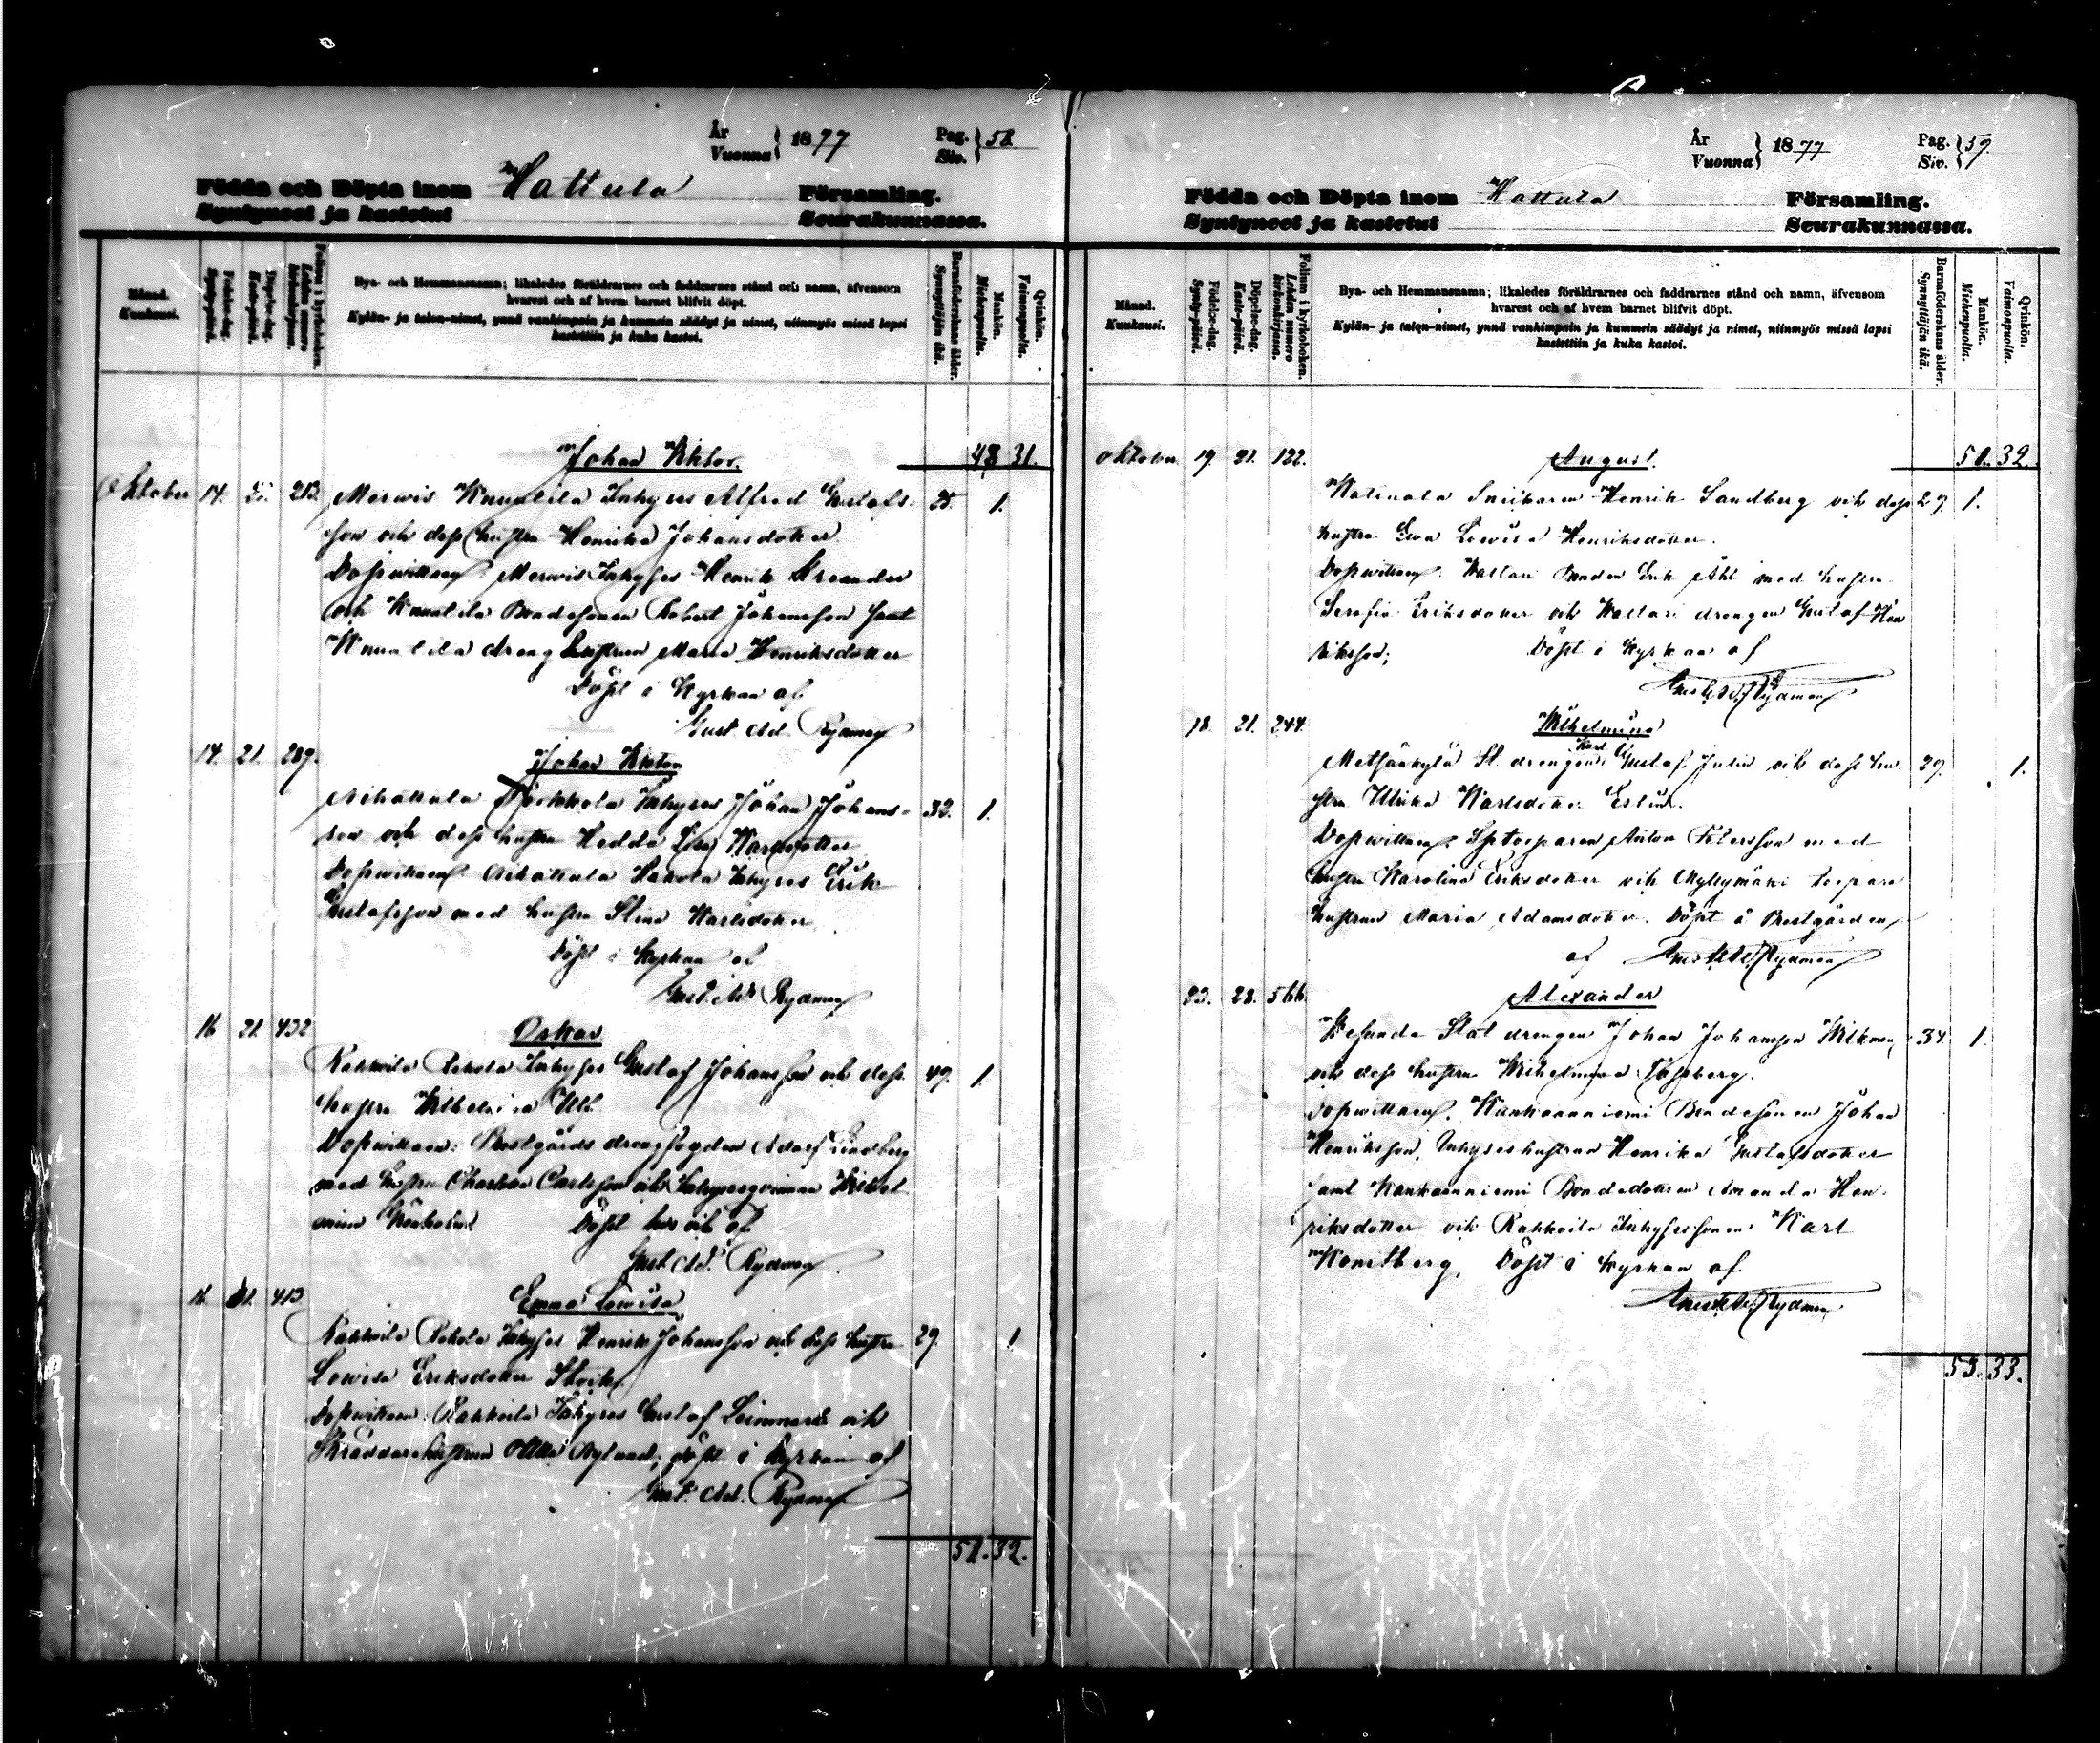 År
Vuonna } 1877
Pag.
Siv. } 58
Födda och Döpta inom Hattula Församling.
Syntyneet ja kastetut Seurakunnassa.
Månad.
Kuukausi.
Födelse-dag.
Synty-päivä.
Döpelse-dag.
Kaste-päivä.
Folium i kyrkoboken.
Lehden numero kirkonkirjassa.
Bya- och Hemmansnamn; likaledes föräldrarnes och faddrarnes stånd och namn, äfvensom
hvarest och af hvem barnet blifvit döpt.
Kylän- ja talon-nimet, ynnä vanhimpain ja kummein säädyt ja nimet, niinmyös missä lapsi
kastettiin ja kuka kastoi.
Barnaföderskans ålder.
Synnyttäjän ikä.
Mankön.
Miehenpuolta.
Qvinkön.
Vaimonpuolta.
Johan Viktor. 48 31.
Oktober 14. 213. Merwis Knuutila Inhyses Alfred Gustafs- 25. 1.
son och dess hustru Henrika Johansdotter
Dopwittnen: Merwis Inhyses Henrik
och Knuutila Bondesonen Robert Johansson samt
Knuutila dreng hustrun Maria Henriksdotter
Döpt i Kyrkan af
Gust. Ad. Rydman
14. 21. 289. Johan Viktor
Inhyses Johan Johans- 32. 1.
son och dess hustru Hedda Lisa Karlsdotter
Dopwittnen Inhyses Erik
Gustafsson med hustru Stina Karlsdotter
Döpt i Kyrkan af
Gust. Ad. Rydman
16 21. 432 Oskar
Rahkoila Pekola Inhyses Gustaf Johansson och dess 49. 1.
hustru Wilhelmina
Dopwittnen: Prestgårds drengfogden Adolf Lindberg
med hustru Carlsson och Inhysesqvinnan
Döpt hos och af
Gust. Ad. Rydman
16. 21. 413. Emma Lowisa
Rahkoila Pekola Inhyses Henrik Johansson och dess hustru 29. 1
Lowisa Eriksdotter
Dopwittnen: Rahkoila Inhyses Gustaf och
Skräddarehustrun Nylund, döpt i Kyrkan af
Gust. Ad. Rydman
51. 32.
År
Vuonna } 1877
Pag.
Siv. } 59
Födda och Döpta inom Hattula Församling.
Syntyneet ja kastetut Seurakunnassa.
Månad.
Kuukausi.
Födelse-dag.
Synty-päivä.
Döpelse-dag.
Kaste-päivä.
Folium i kyrkoboken.
Lehden numero kirkonkirjassa.
Bya- och Hemmansnamn; likaledes föräldrarnes och faddrarnes stånd och namn, äfvensom
hvarest och af hvem barnet blifvit döpt.
Kylän- ja talon-nimet, ynnä vanhimpain ja kummein säädyt ja nimet, niinmyös missä lapsi
kastettiin ja kuka kastoi.
Barnaföderskans ålder.
Synnyttäjän ikä.
Mankön.
Miehenpuolta.
Qvinkön.
Vaimonpuolta.
Oktober 19. 21. 122. August. 51. 32
Katinala Snickaren Henrik Sandberg och dess 27. 1.
hustru Ewa Lowisa Henriksdotter.
Dopwittnen: Wattari Bonden Erik Ahl med hustru
Serafia Eriksdotter och Wattari drengen Gustaf Hen
riksson; Döpt i Kyrkan af
Gust. Ad. Rydman
18. 21. 244. Wilhelmina
Metsänkylä St. drengen Karl Gustaf Julin och dess hu- 29. 1.
stru Ulrika Karlsdotter
Dopwittnen: Sptorparen Anton Petersson med
hustru Karolina Eriksdotter och Myllymäki torpare
hustrun Maria Adamsdotter. Döpt i Prestgården
af Gust. Ad. Rydman
23. 28. 566. Alexander
Stat drengen Johan Johansson Wikman 34. 1.
och dess hustru Wilhelmina
Dopwittnen. Kankaanniemi Bondesonen Johan
Henriksson, Inhyseshustrun Henrika Gustafsdotter
samt Kankaanniemi Bondedottren Amanda Hen-
riksdotter och Rahkoila Inhysessonen Karl
Kornberg. Döpt i Kyrkan af
Gust. Ad. Rydman
53. 33.